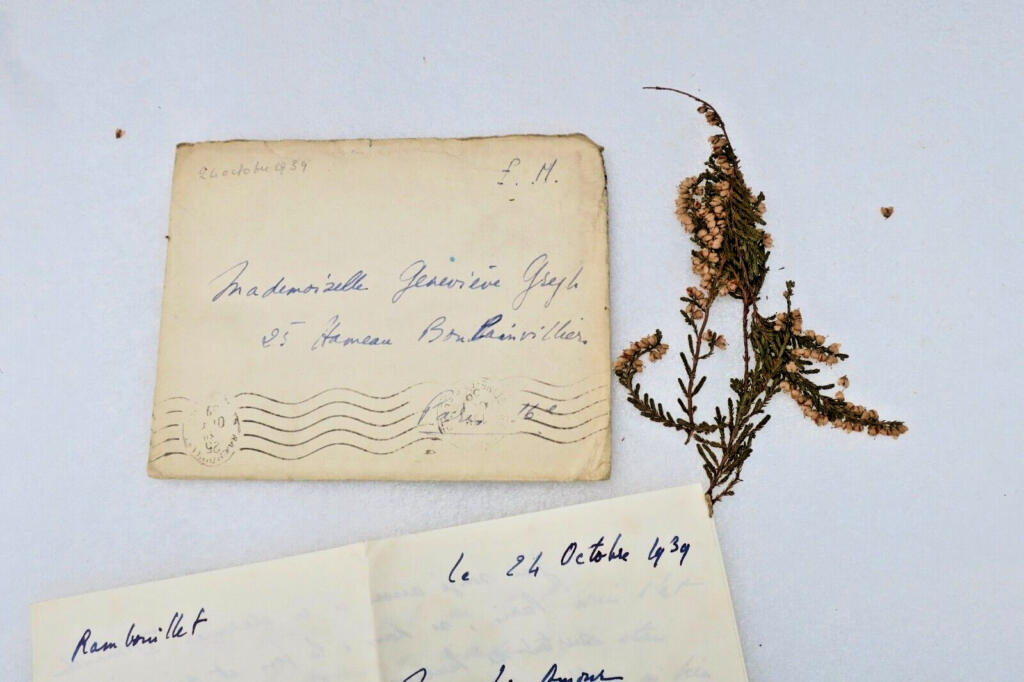 24 octobre 1939
F. M.
Mademoiselle Geneviève Gregh
25 Hameau Boulainvilliers
Paris 16e
Rambouillet
le 24 Octobre 1939
Amour